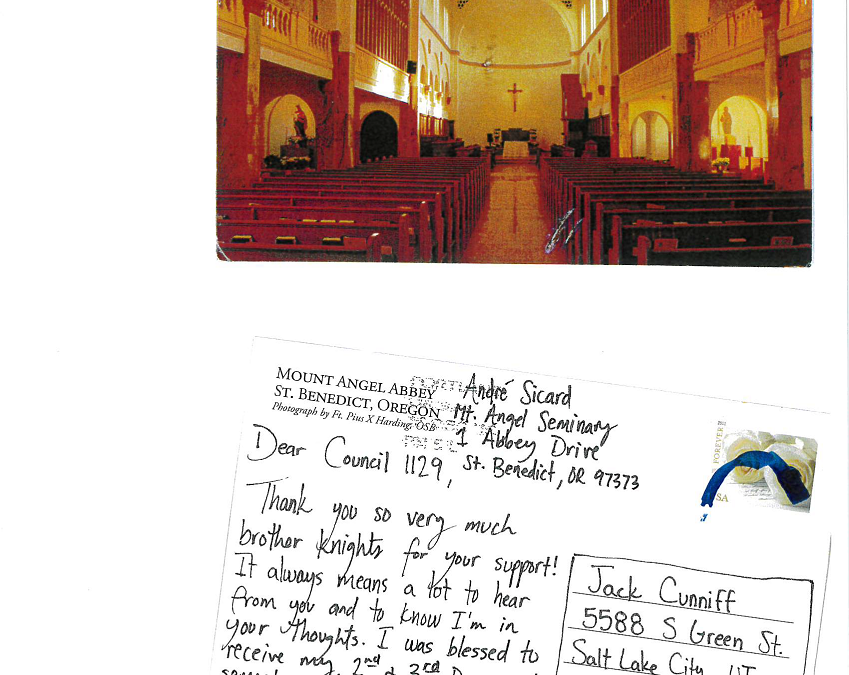 MOUNT ANGEL ABBEY
ST. BENEDICT, OREGON
Photograph by Fr. Pius X Harding, OSB
André Sicard
Mt. Angel Seminary
1 Abbey Drive
St. Benedict, OR 97373
FOREVER
SA
Dear Council 1129,
Thank you so very much
brother knights for your support!
It always means a lot to hear
from you and to know I'm in
your thoughts. I was blessed to
receive my 2nd & 3rd
Jack Cunniff
5588 S Green St.
Salt Lake City, UT